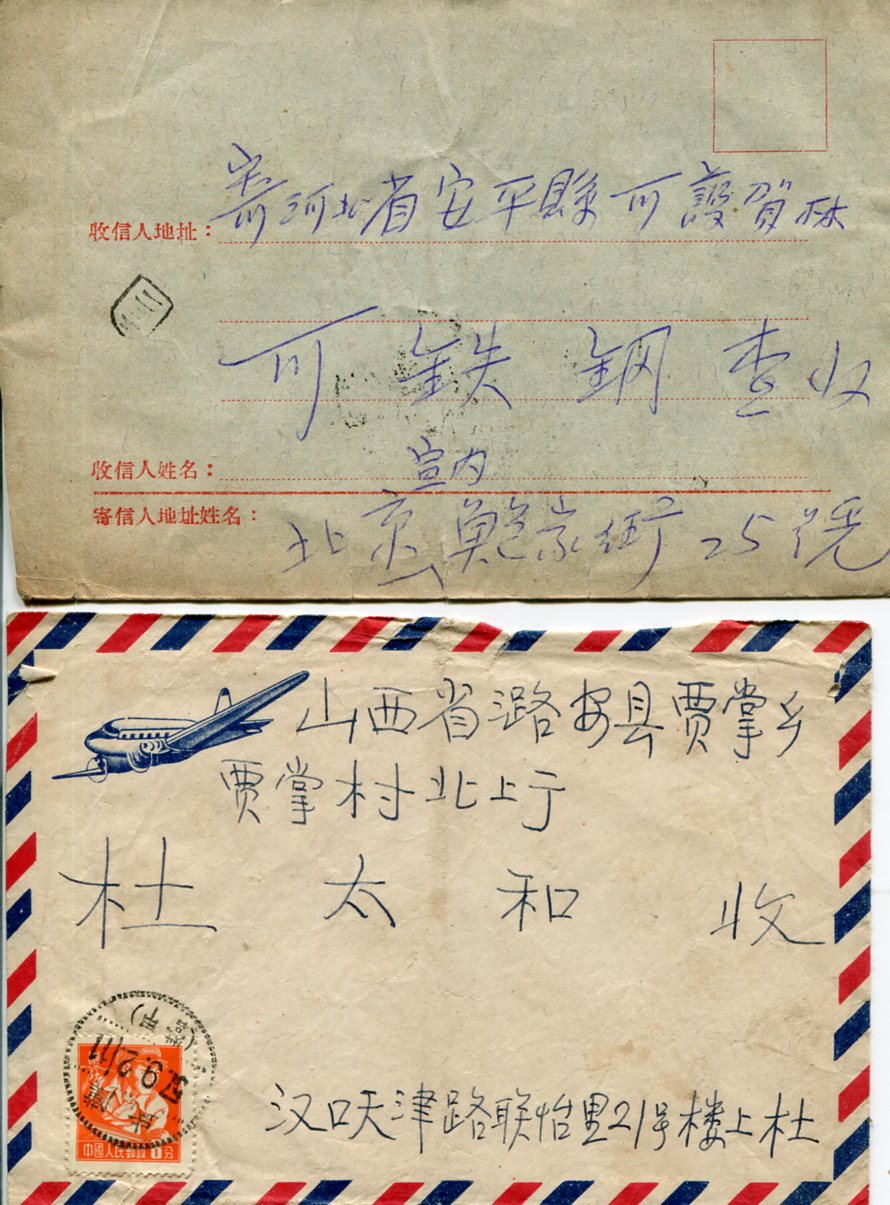 收信人地址：寄河北省安平縣可護賀林
可铁钢查收
收信人姓名：
宣内
寄信人地址姓名：北京鮑家街25號
山西省潞安县贾掌乡
贾掌村北上亍
杜太和收
57.9.2
中國人民郵政
分
汉口天津路联怡里21号楼上杜